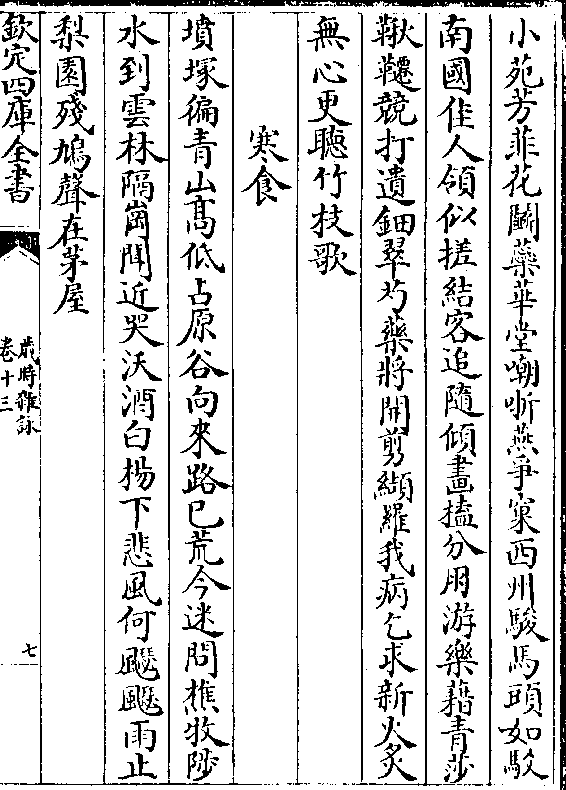 小苑芳菲花鬭藥華堂嘲哳燕爭窠西州駿馬頭如馭
南國佳人頷似搓結客追隨傾畫榼分朋游樂藉青莎
鞦韆競打遺鈿翠芍藥將開剪纈羅我病乞求新火炙
無心更聽竹枝歌
寒食
墳塚徧青山高低占原谷向來路已荒今迷問樵牧陟
水到雲林隔崗聞近哭沃酒白楊下悲風何飂飂雨止
梨園殘鳩聲在茅屋
欽定四庫全書
歲時雜詠
卷十三
七